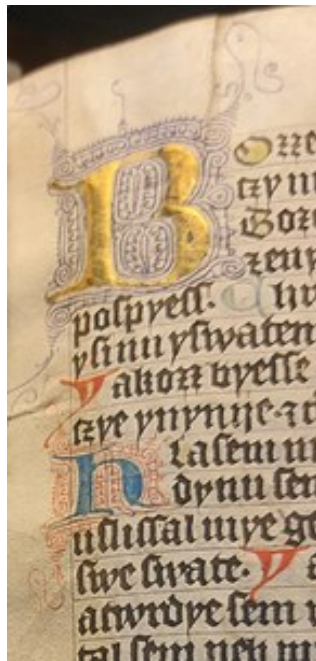 Bozze
czy m
Boze
zeny
pospyess. Chv
ysinu yswatem
Yakozz byesse
czye ynynye. z c
hlasem m
dynu sem
uslissal mye ge
swe swate. Y a
atwrdye sem
tal sem neb m